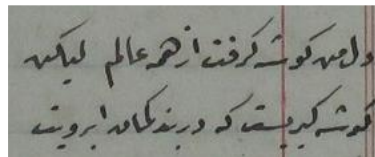 دل من گوشه گرفت از همه عالم لیکن
گوشه گیریست که در بند کمان ابرویت